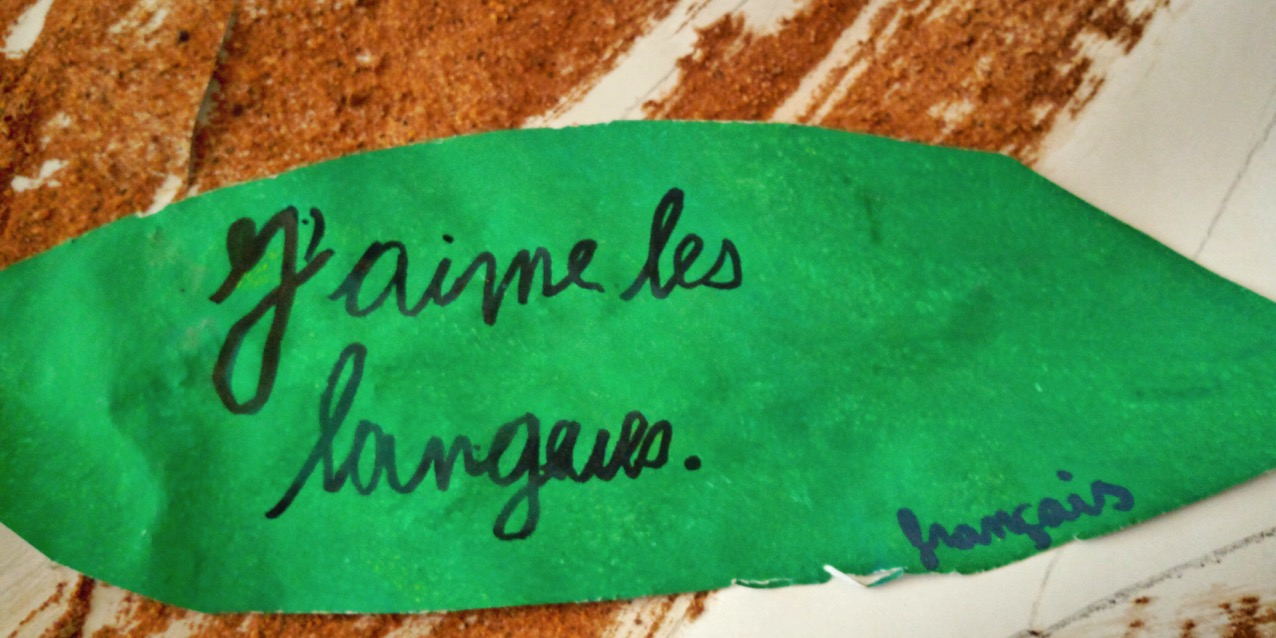 J'aime les
langues.
français